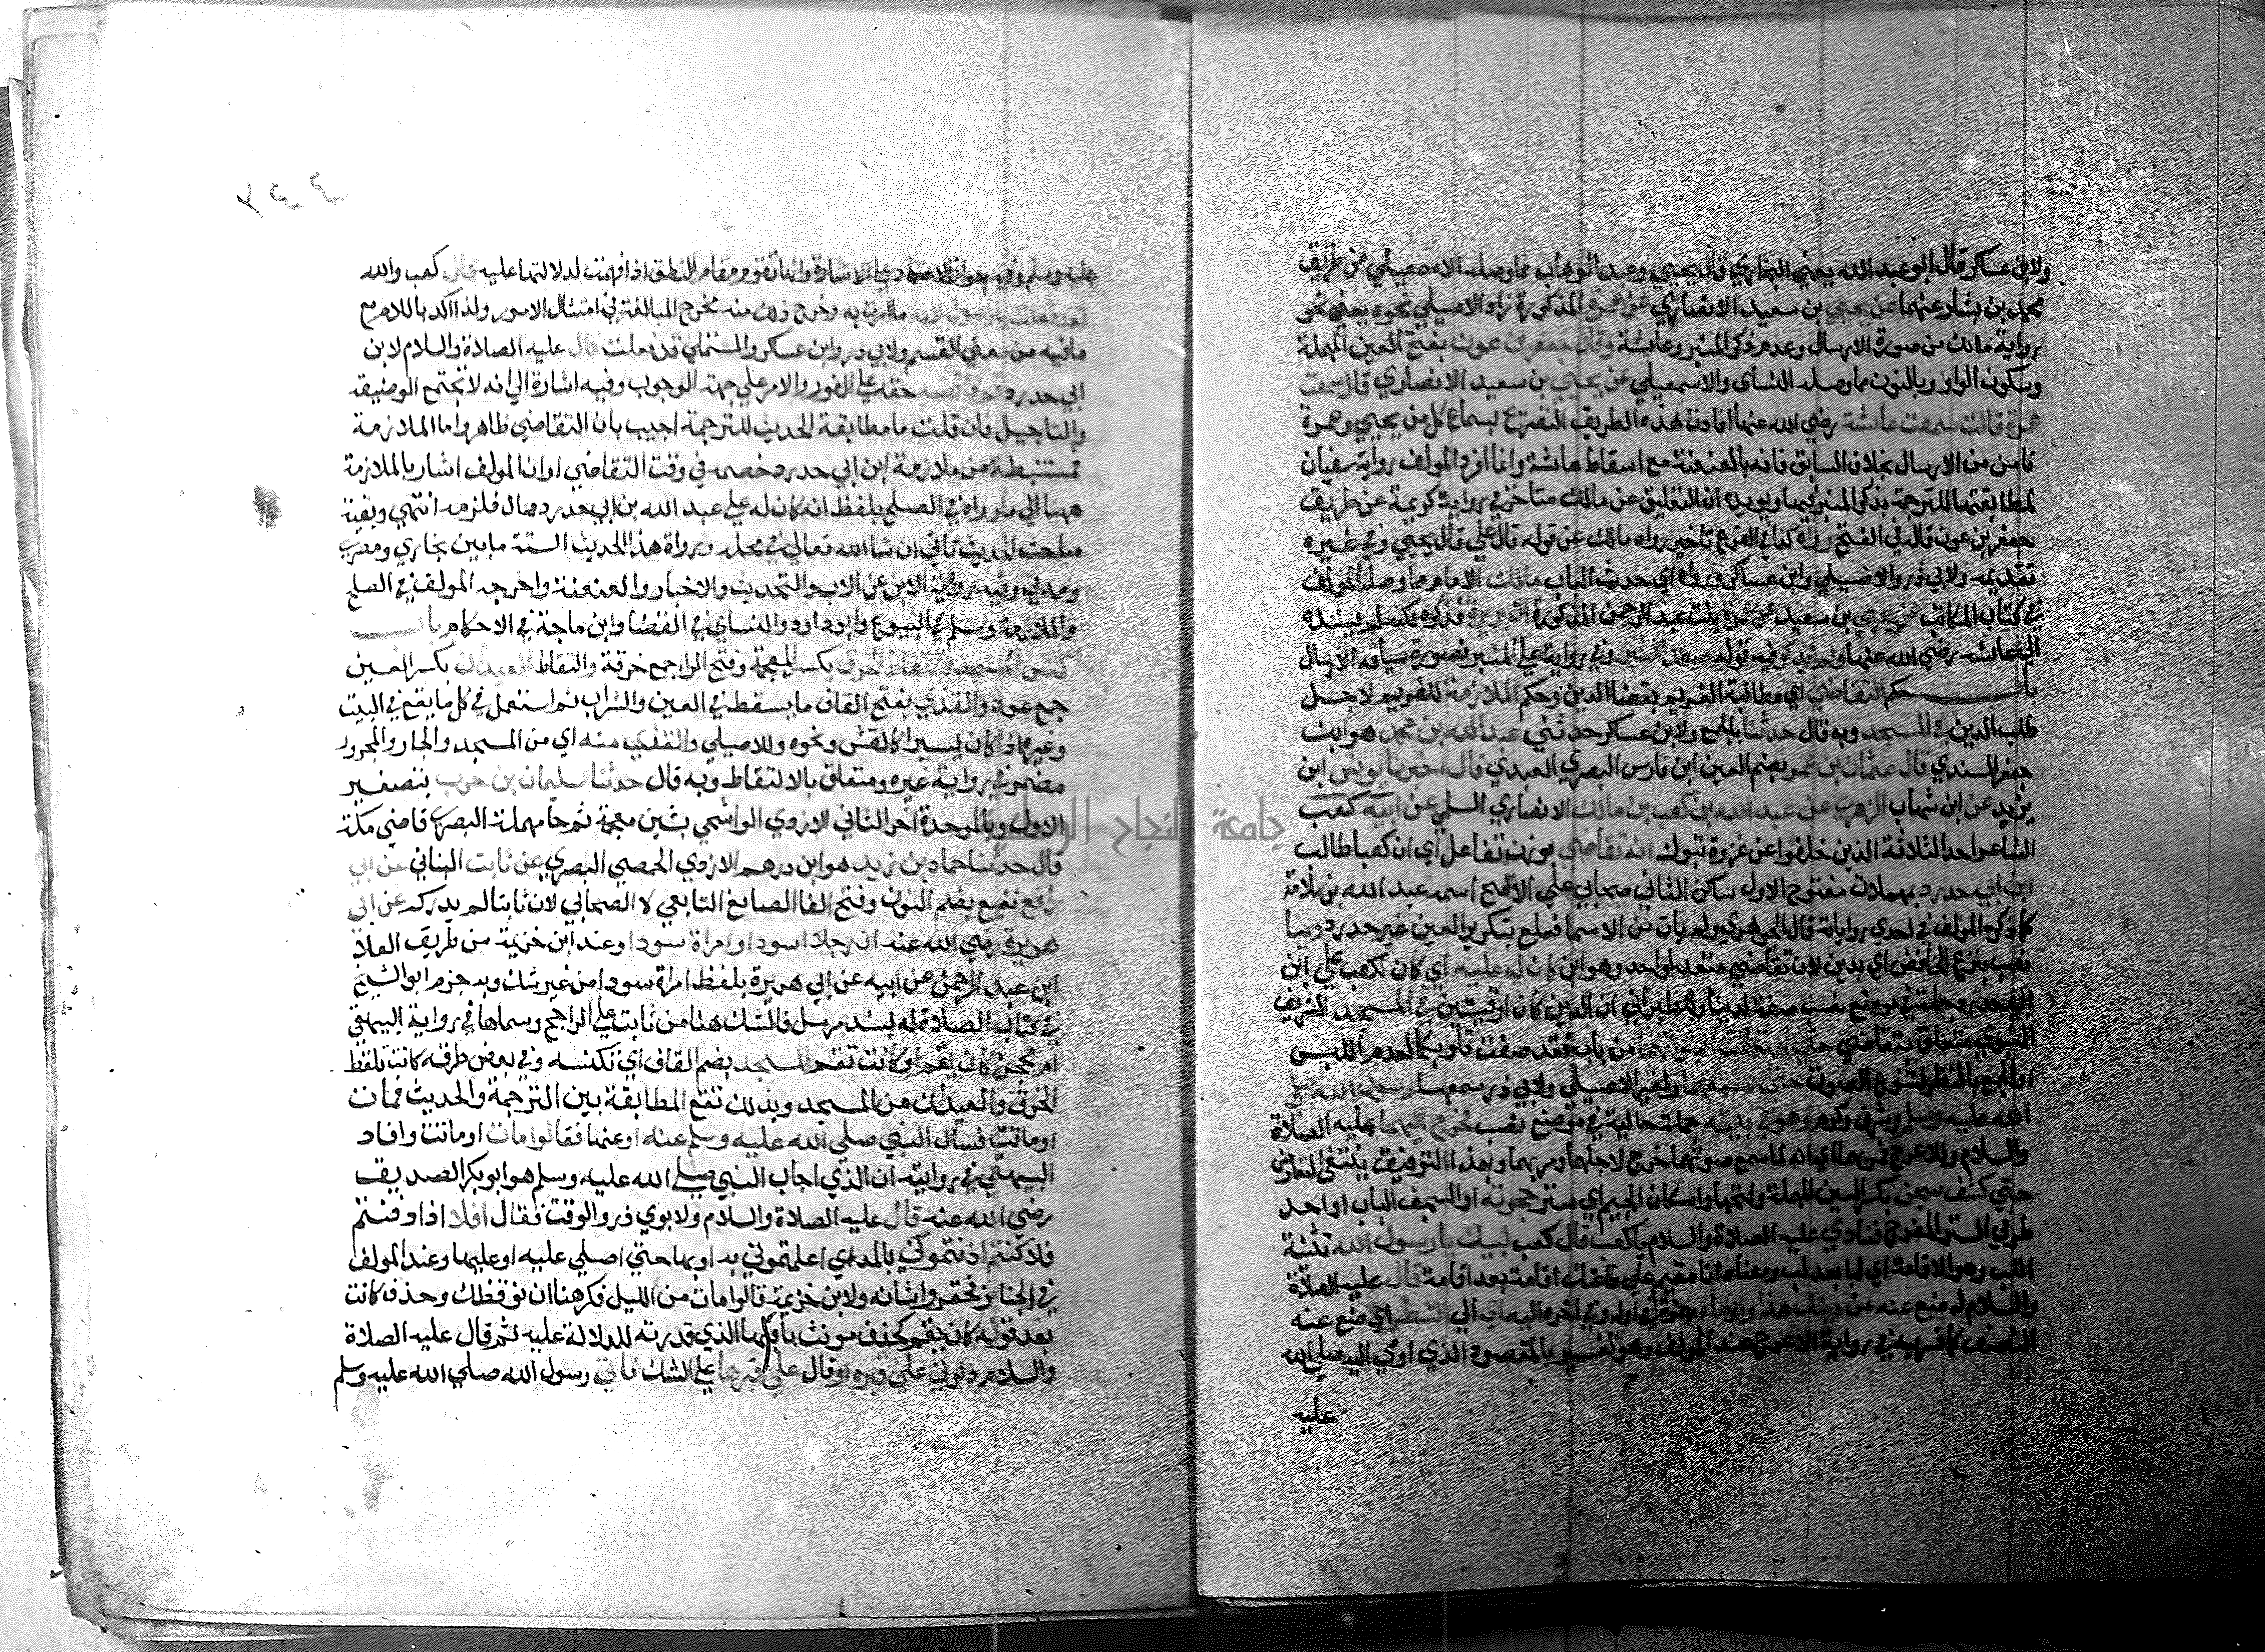 ولابن عساكر قال ابو عبد الله يعني البخاري قال يحيي وعبد الوهاب مما وصله الاسمعيلي من طريق
محمد بن بشار عنهما عن يحيي بن سعيد الانصاري عن عمرة المذكورة زاد الاصيلي نحوه يعني نحو
رواية مالك من صورة الارسال وعدم ذكر المنبر وعائشة وقال جعفر بن عون بفتح العين المهملة
وسكون الواو وبالنون مما وصله النساي والاسمعيلي عن يحيي بن سعيد الانصاري قال سمعت
عمرة قالت سمعت عائشة رضي الله عنها افادت هذه الطريق التصريح بسماع كل من يحيي وعمرة
فامن من الارسال بخلاف السابق فانه بالعنعنة مع اسقاط عائشة وانما افرد المولف رواية سفيان
لمطابقتها للترجمة بذكر المنبر فيها ويويده ان التعليق عن مالك متاخر في رواية كريمة عن طريق
جعفر بن عون قاله في الفتح رواه كذا في الفرع تاخير رواه مالك عن قوله قال علي قال يحيي وفي غيره
تقديمه ولابي ذر والاصيلي وابن عساكر ورواه اي حديث الباب مالك الامام مما وصله المولف
في كتاب المكاتب عن يحيي بن سعيد عن عمرة بنت عبد الرحمن المذكورة ان بريرة فذكره لكنه لم يسنده
الي عائشه رضي الله عنها ولم يذكر فيه قوله صعد المنبر وفي رواية علي المنبر فصورة سياقه الارسال
باب حكم التقاضي اي مطالبة الغريم بقضا الدين وحكم الملازمة للغريم لاجل
طلب الدين في المسجد وبه قال حدثنا بالجمع ولابن عساكر حدثني عبد الله بن محمد هو ابن
جعفر المسندي قال عثمان بن عمر بضم العين ابن فارس البصري العبدي قال اخبرنا يونس ابن
يزيد عن ابن شهاب الزهري عن عبد الله بن كعب بن مالك الانصاري السلمي عن ابيه كعب
الشاعر احد الثلاثة الذين خلفوا عن غزوة تبوك انه تقاضي بوزن تفاعل اي ان كعبا طالب
ابن ابي حدرد بمهملات مفتوح الاول ساكن الثاني صحابي علي الاصح اسمه عبد الله بن سلامة
كما ذكره المولف في احدي رواياته قال الجوهري ولم يات من الاسما فعلع بتكرير العين غير حدرد دينا
نصب بنزع الخافض اي بدين لان تقاضي متعد لواحد وهو ابن كان له عليه اي كان لكعب علي ابن
ابي حدرد وجملة في موضع نصب صفة لدينا وللطبراني ان الدين كان اوقيتين في المسجد الشريف
النبوي متعلق بتقاضي حتي ارتفعت اصواتهما من باب فقد صغت قلوبكما لعدم اللبس
او الجمع بالنظر لتنوع الصوت حتي سمعهما ولغير الاصيلي ولابي ذر سمعها رسول الله صلي
الله عليه وسلم وشرف وكرم وهو في بيته جملة حالية في موضع نصب فخرج اليهما عليه الصلاة
والسلام وللاعرج فمر بهما اي انه لما سمع صوتهما خرج لاجلهما ومر بهما وبهذا التوفيق ينتفي التعارض
حتي كشف سجف بكسر السين المهملة وفتحها واسكان الجيم اي ستر حجرته او السجف الباب او احد
طرفي الستر المفرج فنادي عليه الصلاة والسلام يا كعب قال كعب لبيك يا رسول الله تثنية
اللب وهو الاقامة اي لبا بعد لب ومعناه انا مقيم علي طاعتك اقامة بعد اقامة قال عليه الصلاة
والسلام له ضع عنه من دينك هذا واوما بهمزة في اوله وفي اخره اليه اي الي الشطر اي ضع عنه
النصف كما فسر به في رواية الاعرج عند المولف وهو تفسير بالمقصود الذي اومي اليه صلي الله
عليه
عليه وسلم وفيه جواز الاعتماد علي الاشارة وانها تقوم مقام النطق اذا فهمت لدلالتها عليه قال كعب والله
لقد فعلت يا رسول الله ما امرت به وخرج ذلك منه مخرج المبالغة في امتثال الامور ولذا اكد باللام مع
ما فيه من معني القسم ولابي ذر وابن عساكر والمستملي قد فعلت قال عليه الصلاة والسلام لابن
ابي حدرد قم فاقضه حقه علي الفور والامر علي جهة الوجوب وفيه اشارة الي انه لا تجتمع الوضيعة
والتاجيل فان قلت ما مطابقة الحديث للترجمة اجيب بان التقاضي ظاهر واما الملازمة
فمستنبطة من ملازمة ابن ابي حدرد خصمه في وقت التقاضي او ان المولف اشار بالملازمة
ههنا الي ما رواه في الصلح بلفظ انه كان له علي عبد الله بن ابي حدرد مال فلزمه انتهي وبقية
مباحث الحديث تاتي ان شا الله تعالي في محله ورواة هذا الحديث الستة ما بين بخاري ومصري
ومدني وفيه رواية الابن عن الاب والتحديث والاخبار والعنعنة واخرجه المولف في الصلح
والملازمة ومسلم في البيوع وابو داود والنساي في القضا وابن ماجة في الاحكام باب
كنس المسجد والتقاط الخرق بكسر المعجمة وفتح الرا جمع خرقة والتقاط العيدان بكسر العين
جمع عود والقذي بفتح القاف ما يسقط في العين والشراب ثم استعمل في كل ما يقع في البيت
وغيره اذا كان يسيرا كالقش ونحوه وللاصيلي والقذي منه اي من المسجد والجار والمجرور
مضمر في رواية غيره ومتعلق بالالتقاط وبه قال حدثنا سليمان بن حرب بتصغير
الاول وبالموحدة اخر الثاني الازدي الواشحي بشين معجمة ثم حا مهملة البصري قاضي مكة
قال حدثنا حماد بن زيد هو ابن درهم الازدي الجهضمي البصري عن ثابت البناني عن ابي
رافع نفيع بضم النون وفتح الفا الصايغ التابعي لا الصحابي لان ثابتا لم يدركه عن ابي
هريرة رضي الله عنه ان رجلا اسود او امراة سودا وعند ابن خزيمة من طريق العلا
ابن عبد الرحمن عن ابيه عن ابي هريرة بلفظ امراة سودا من غير شك وبه جزم ابو الشيخ
في كتاب الصلاة له بسند مرسل فالشك هنا من ثابت علي الراجح وسماها في رواية البيهقي
ام محجن كان يقم او كانت تقم المسجد بضم القاف اي تكنسه وفي بعض طرقه كانت تلقط
الخرق والعيدان من المسجد وبذلك تقع المطابقة بين الترجمة والحديث فمات
او ماتت فسال النبي صلي الله عليه وسلم عنه او عنها فقالوا مات او ماتت وافاد
البيهقي في روايته ان الذي اجاب النبي صلي الله عليه وسلم هو ابو بكر الصديق
رضي الله عنه قال عليه الصلاة والسلام ولابوي ذر والوقت فقال افلا اذا دفنتم
فلا كنتم اذنتموني بالمد اي اعلمتموني به او بها حتي اصلي عليه او عليها وعند المولف
في الجنايز فحقروا شانه ولابن خزيمة قالوا مات من الليل فكرهنا ان نوقظك وحذف كانت
بعد قوله كان يقم كحذف مونث باقيها الذي قدرته للدلالة عليه ثم قال عليه الصلاة
والسلام دلوني علي قبره او قال علي قبرها علي الشك فاتي رسول الله صلي الله عليه وسلم